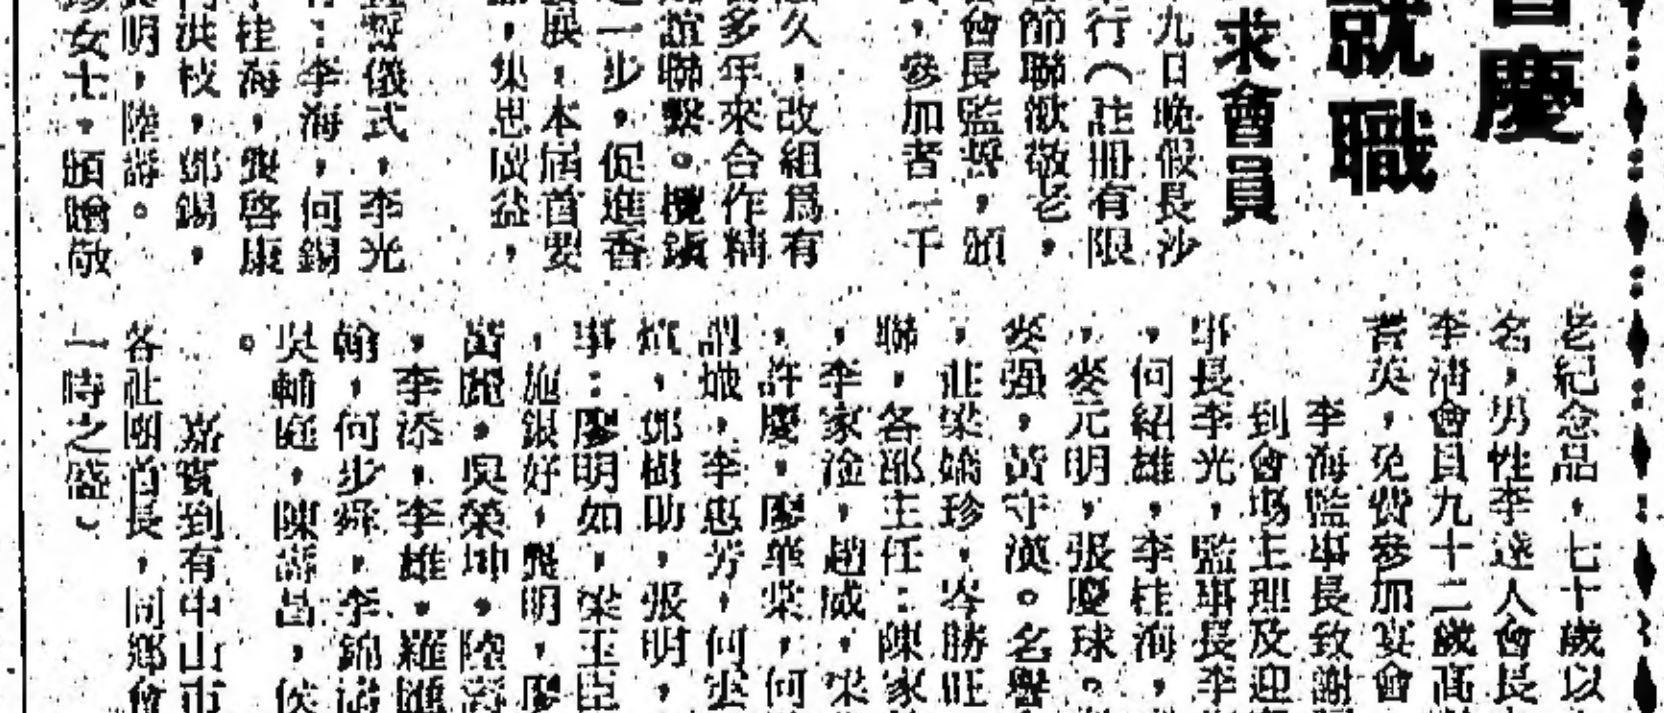 會慶
就職
求會員
九日晚假長沙
行（註冊有限
節聯歡敬老，
會長監誓，頒
，參加者一千
久，改組爲有
多年來合作精
誼聯繫。欖鎮
一步，促進香
展，本屆首要
，集思廣益，
誓儀式，李光
：李海，何錫
桂海，龔啓康
洪枝，鄧錫，
明，陸壽。
女士，頒贈敬
老紀念品，七十歲以
名，男性李遂人會長
李清會員九十二歲高
耆英，免費參加宴會
李海監事長致謝
到會場主理及迎
事長李光，監事長李
，何紹雄，李桂海，
，麥元明，張慶球。
麥强，黃守漢。名譽
，莊梁嬌珍，岑勝旺
聯，各部主任：陳家
，李家淦，趙威，梁
，許慶，廖華業，何
，李惠芳，何
，鄧樹助，張明，
事：廖明如，梁玉臣
，施銀好，龔明，廖
麗，吳榮坤，陸
，李添，李雄，羅匯
翰，何步舜，李錦
吳輔庭，陳壽昌，侯
。
嘉賓到有中山市
各社團首長，同鄉會
一時之盛）